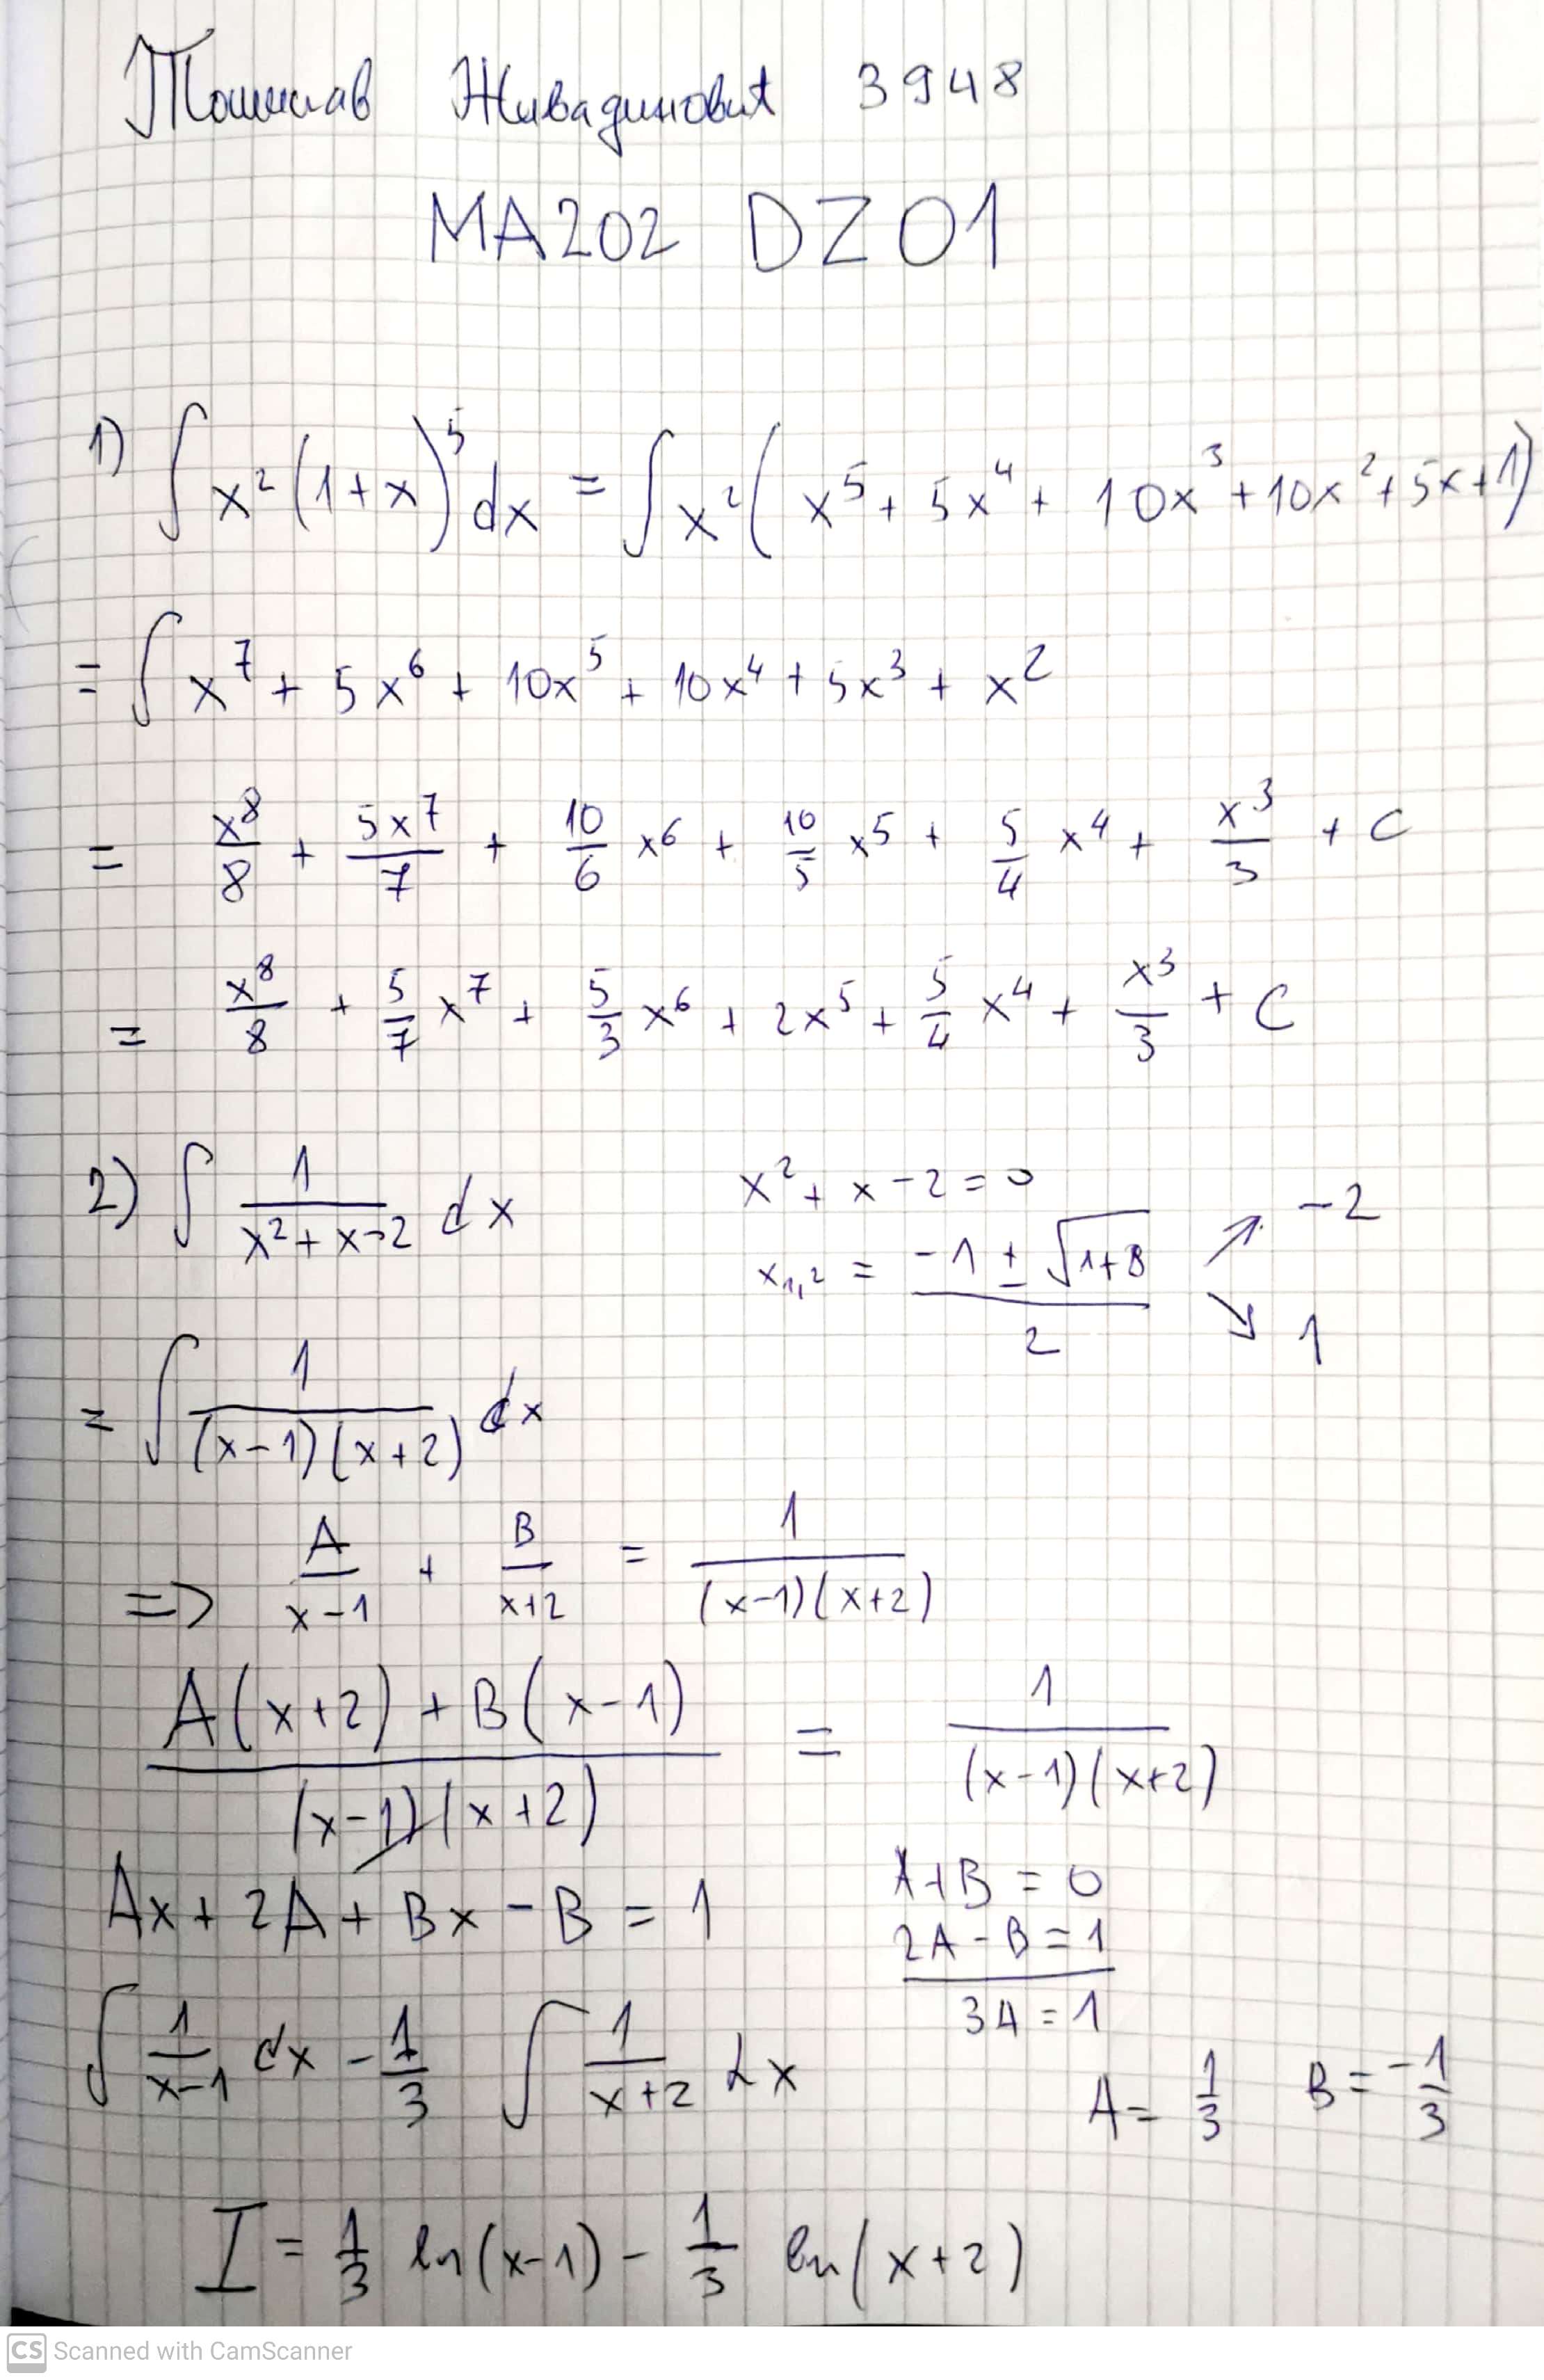 Томислав Живадиновић 3948
MA202 DZ01
1) ∫ x² (1+x)⁵ dx = ∫ x² ( x⁵ + 5x⁴ + 10x³ + 10x² + 5x + 1)
= ∫ x⁷ + 5x⁶ + 10x⁵ + 10x⁴ + 5x³ + x²
= x⁸/8 + 5x⁷/7 + 10/6 x⁶ + 10/5 x⁵ + 5/4 x⁴ + x³/3 + C
= x⁸/8 + 5/7 x⁷ + 5/3 x⁶ + 2x⁵ + 5/4 x⁴ + x³/3 + C
2) ∫ 1/(x²+x-2) dx
x² + x - 2 = 0
x₁,₂ = (-1 ± √(1+8))/2 ↗ -2 ↘ 1
= ∫ 1/((x-1)(x+2)) dx
=> A/(x-1) + B/(x+2) = 1/((x-1)(x+2))
(A(x+2) + B(x-1))/((x-1)(x+2)) = 1/((x-1)(x+2))
Ax + 2A + Bx - B = 1
A+B = 0
2A-B = 1
3A = 1
A = 1/3 B = -1/3
∫ 1/(x-1) dx - 1/3 ∫ 1/(x+2) dx
I = 1/3 ln(x-1) - 1/3 ln(x+2)
CS Scanned with CamScanner